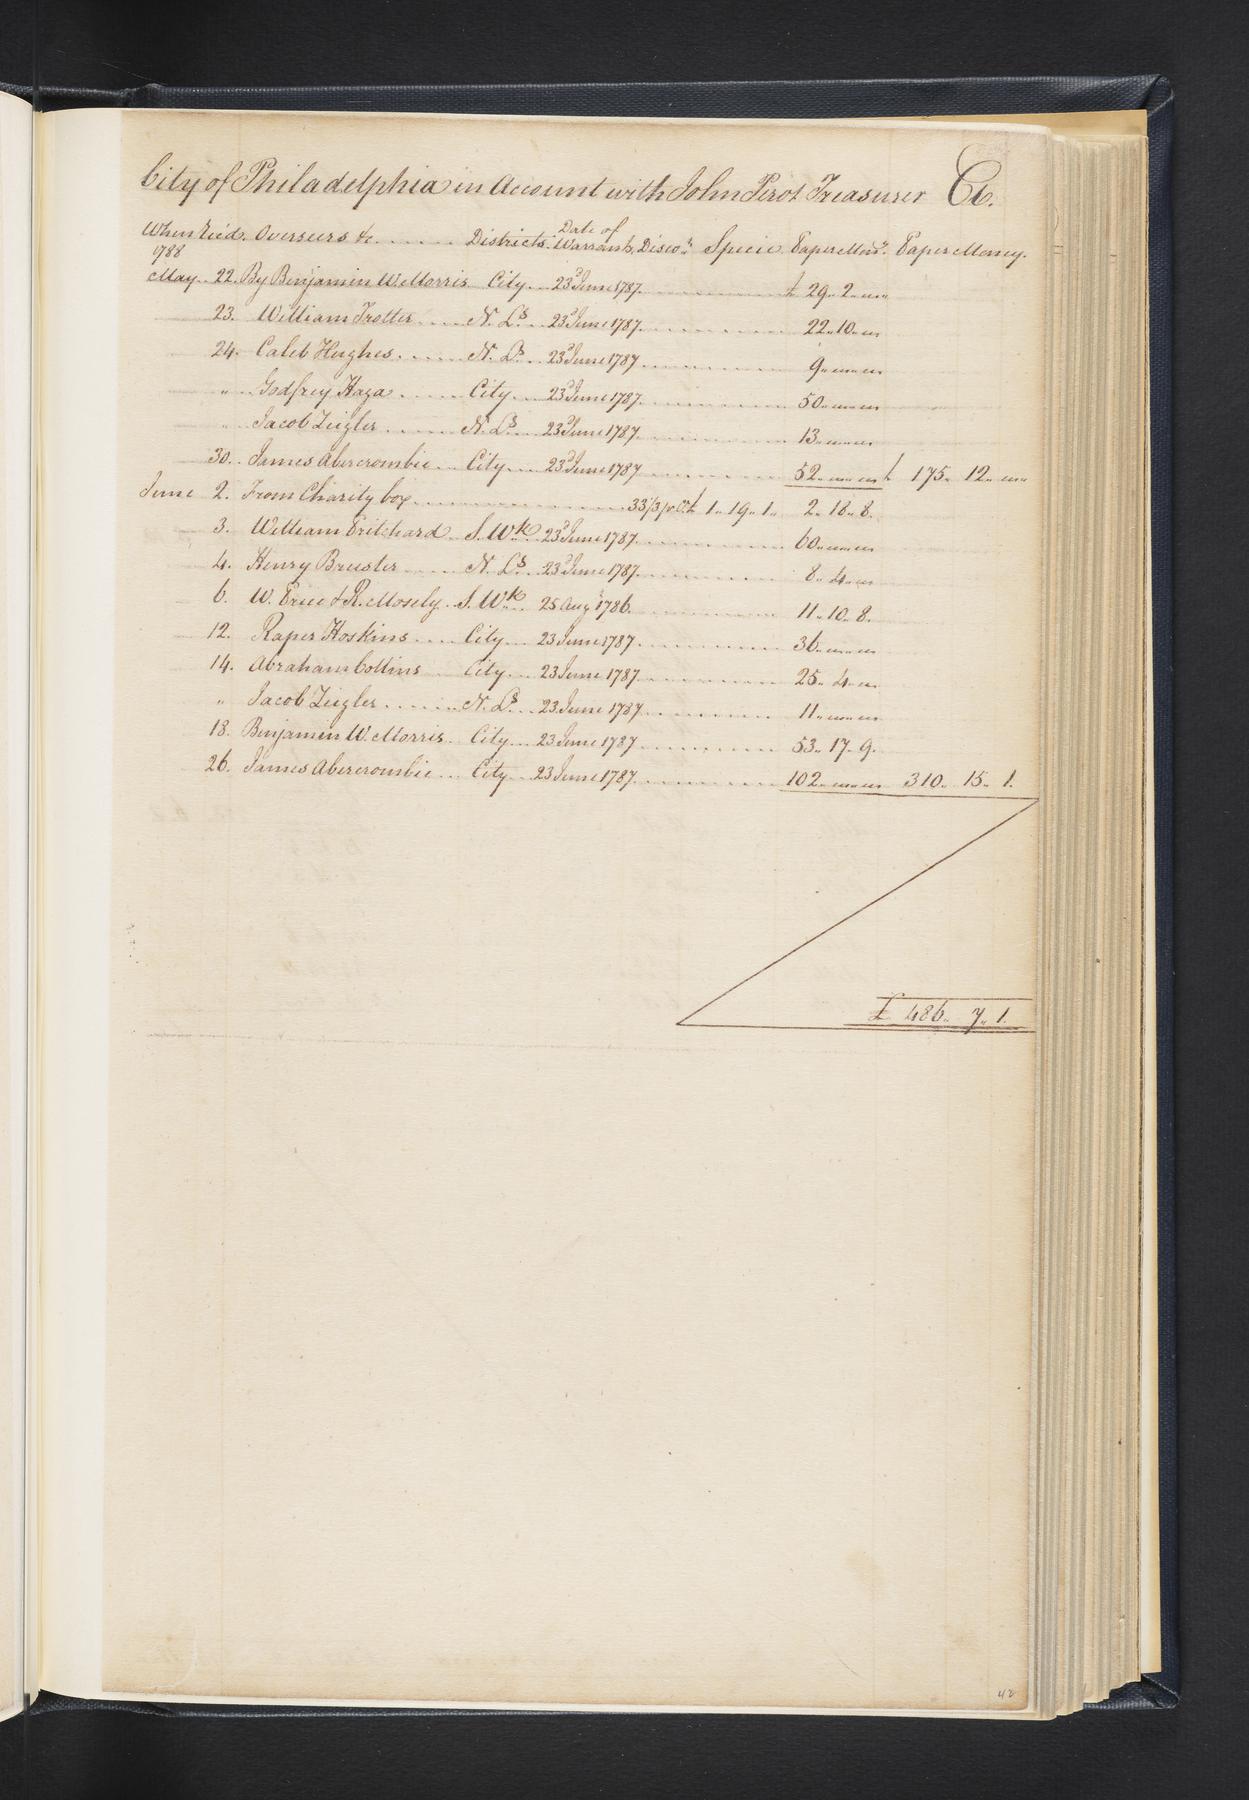 City of Philadelphia in Account with John Perot Treasurer Cr.
When Rec'd. Overseers &c. ...... Districts. Date of Warrants. Disco.t Specie Paper Mon.y Paper Money.
1788
May .. 22. By Benjamin W. Morris City ... 23.d June 1787. ........ £ 29 .. 2 .. "
23. William Trotter ..... N. L.s ... 23.d June 1787. ........ 22 .. 10 .. "
24. Caleb Hughes ...... N. L.s ... 23.d June 1787. ........ 9 .. " .. "
" Godfrey Haga ...... City ... 23.d June 1787. ........ 50 .. " .. "
" Jacob Zeigler ...... N. L.s ... 23.d June 1787. ........ 13 .. " .. "
30. James Abercrombie ... City .... 23.d June 1787 ........ 52 .. " .. " £ 175 .. 12 .. "
June 2. From Charity box .............. 33 1/3 pr Ct £ 1 .. 19 .. 1 .. 2 .. 18 .. 8.
3. William Pritchard S. W.k 23.d June 1787. ........ 60 .. " .. "
4. Henry Breuster ..... N. L.s .. 23.d June 1787. ........ 8 .. 4 .. "
6. W. Price & R. Mosely. S. W.k .. 25 Aug.t 1786. ........ 11 .. 10 .. 8.
12. Raper Hoskins .... City .... 23 June 1787. ........ 36 .. " .. "
14. Abraham Collins City ... 23 June 1787. ........ 25 .. 4 .. "
" Jacob Zeigler ....... N. L.s ... 23 June 1787. ........ 11 .. " .. "
18. Benjamin W. Morris .. City ... 23 June 1787 ........ 53 .. 17 .. 9.
26. James Abercrombie ... City ... 23 June 1787. ........ 102 .. " .. " 310 .. 15 .. 1.
£ 486 .. 7 .. 1.
42